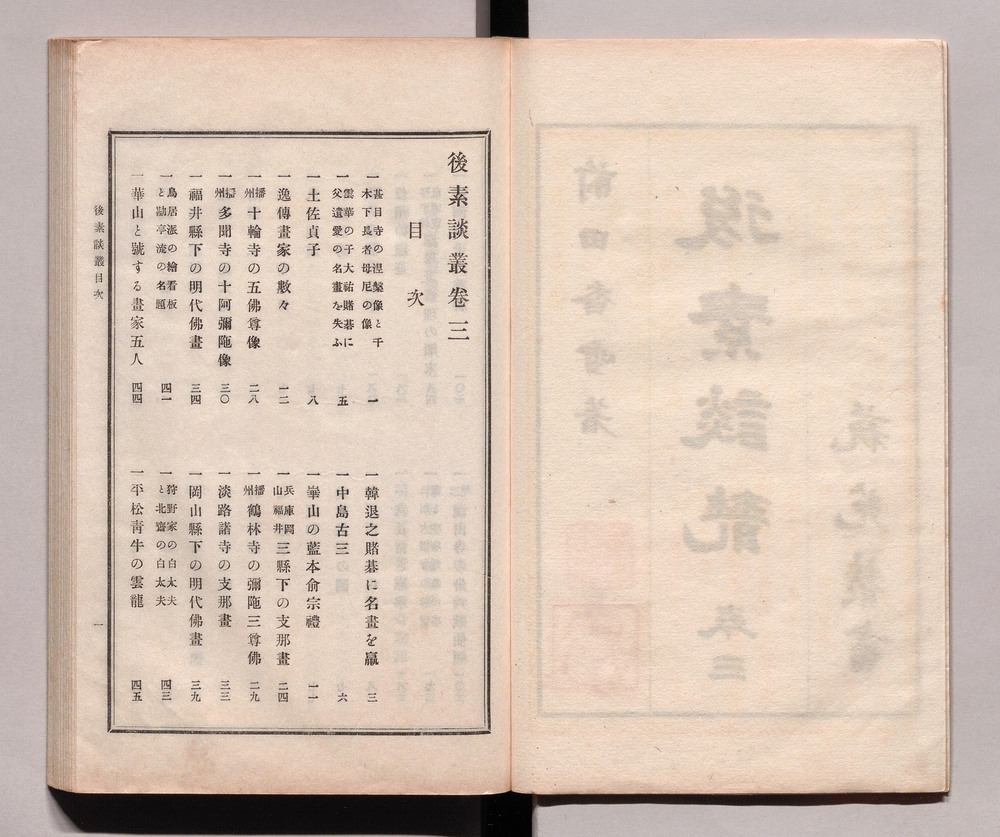 後素談叢卷三
目次
一甚目寺の涅槃像と千木下長者母尼の像　一
一韓退之賭碁に名畫を贏　三
一雲華の干大祐賭碁に父遺愛の名畫を失ふ　五
一中島古三　六
一土佐貞子　八
一崋山の藍本俞宗禮　一一
一逸傳畫家の數々　一二
一兵庫岡山福井三縣下の支那畫　二四
一播州十輪寺の五佛尊像　二八
一播州鶴林寺の彌陁三尊佛　二九
一播州多聞寺の十阿彌陁像　三〇
一淡路諸寺の支那畫　三三
一福井縣下の明代佛畫　三四
一岡山縣下の明代佛畫　三九
一鳥居派の繪看板と勘亭流の名題　四一
一狩野家の白太夫と北齋の白太夫　四三
一華山と號する畫家五人　四四
一平松靑牛の雲龍　四五
後素談叢目次
一